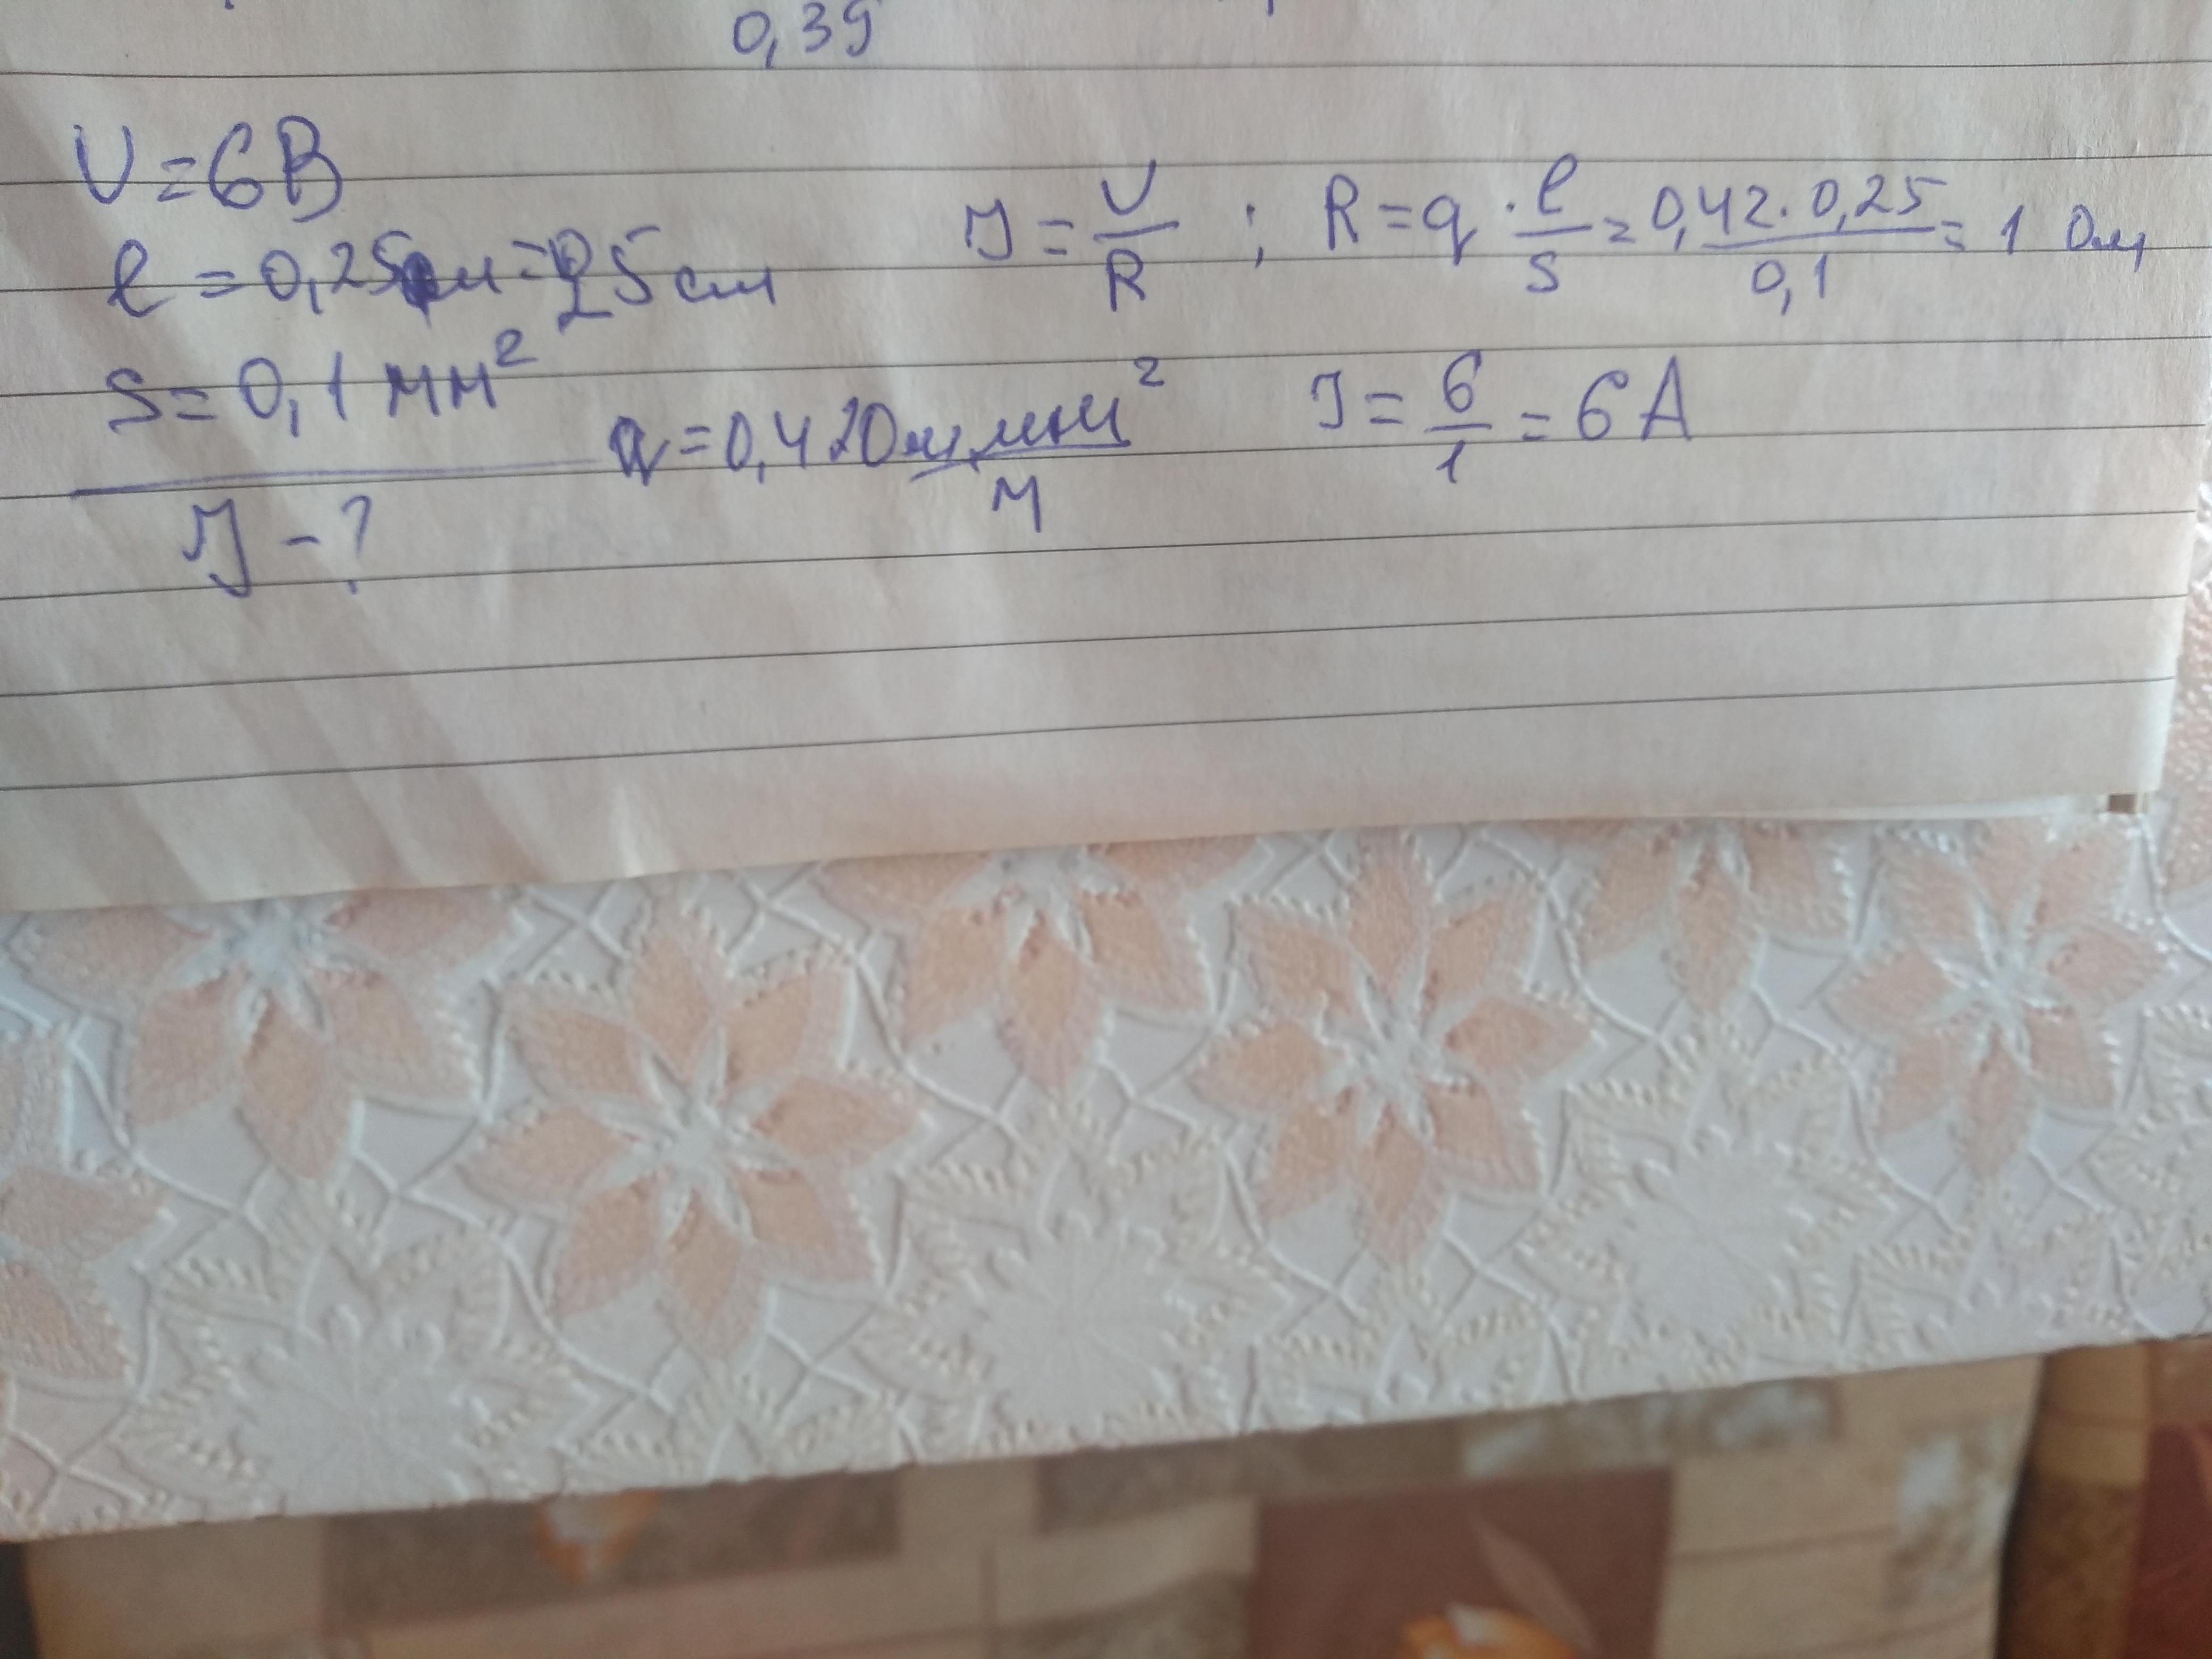 0,39
U=6В
l = 0,25м=25см
S= 0,1мм²
J - ?
q=0,42Ом·мм²/м
J = U/R ; R=q · l/S = 0,42·0,25/0,1 = 1 Ом
J = 6/1 = 6А